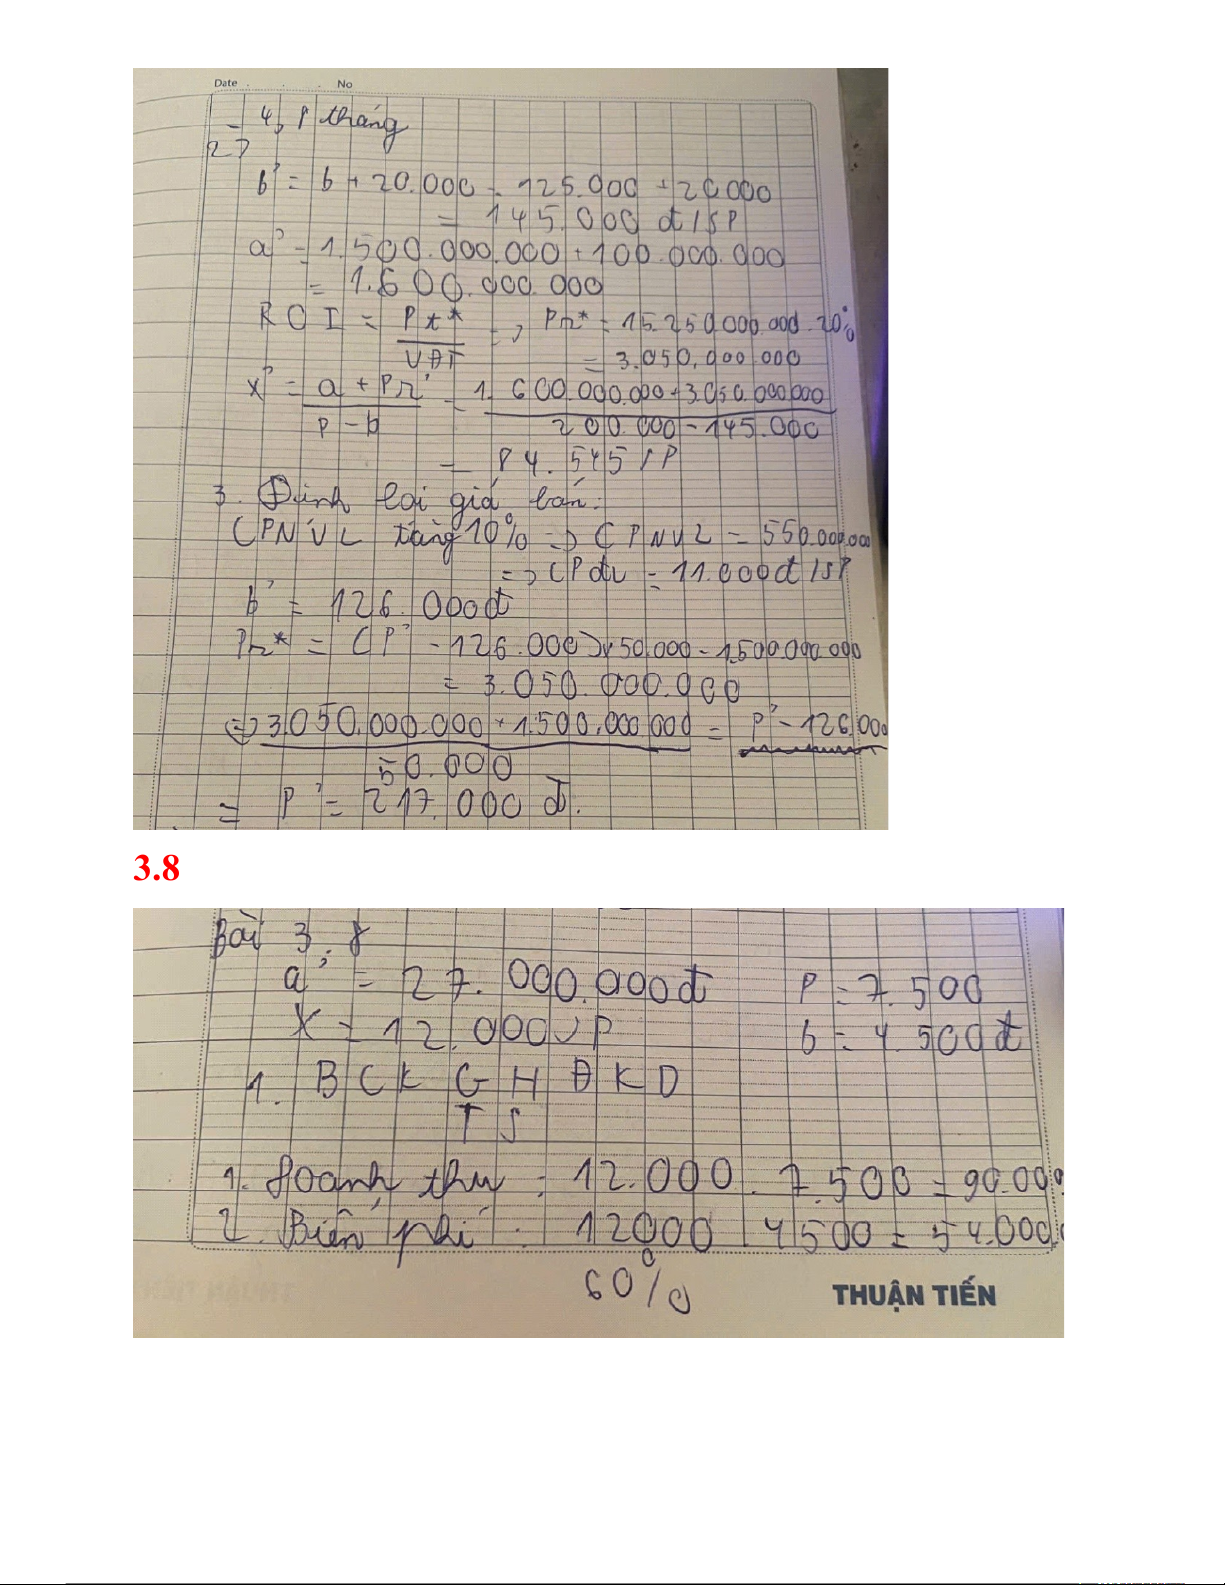 Date No
- 4, 8 tháng
2>
b' = b + 20.000 = 125.000 + 20.000
= 145.000 đ/SP
a' = 1.500.000.000 + 100.000.000
= 1.600.000.000
ROI = Pr* / VĐT => Pr* = 15.250.000.000 . 20%
= 3.050.000.000
x' = a + Pr' / P - b = 1.600.000.000 + 3.050.000.000 / 200.000 - 145.000
= 84.545 SP
3. Định lại giá bán:
CPNVL tăng 10% => CPNVL = 550.000.000
=> CP đv = 11.000đ/SP
b' = 126.000đ
Pr* = (P' - 126.000) x 50.000 - 1.500.000.000
= 3.050.000.000
<=> 3.050.000.000 + 1.500.000.000 / 50.000 = P' - 126.000
= P' = 217.000 đ.
3.8
Bài 3.8
a' = 27.000.000đ P = 7.500
X = 12.000 SP b = 4.500đ
1. BCKGHĐKD
TS
1. Doanh thu : 12.000 . 7.500 = 90.000
2. Biến phí : 12000 . 4500 = 54.000
60%
THUẬN TIẾN